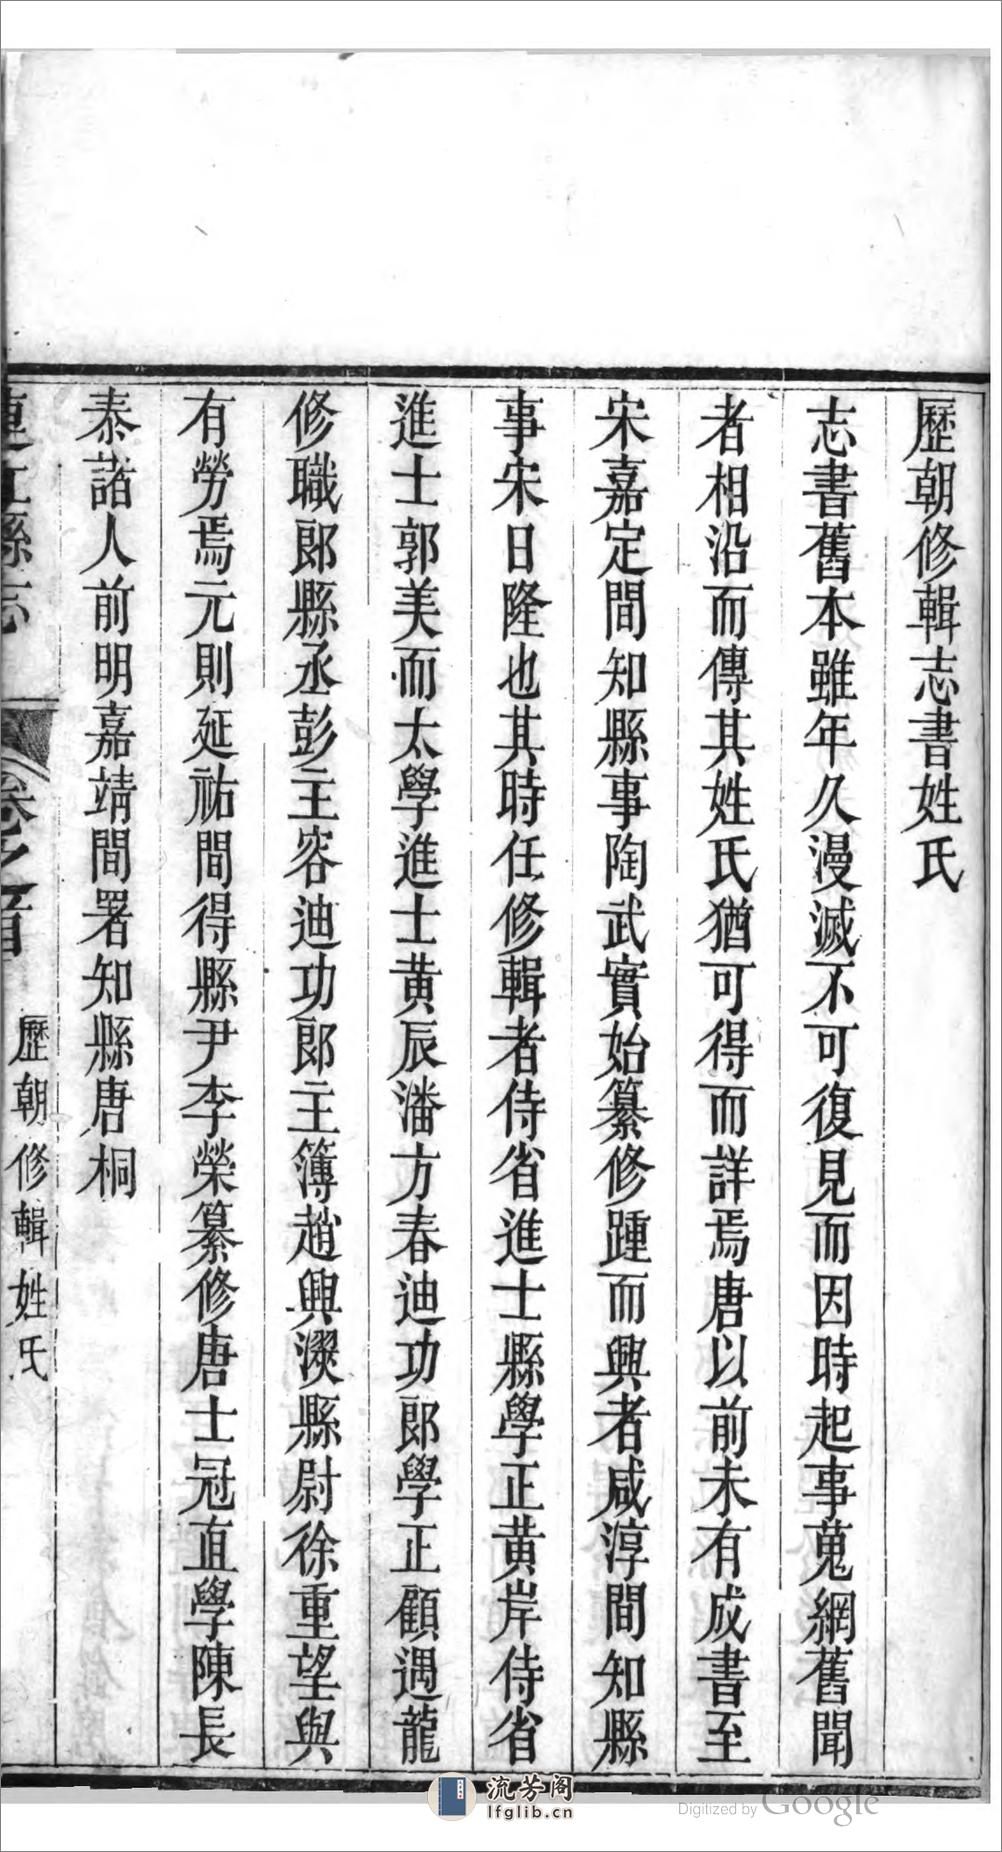 歷朝修輯志書姓氏
志書舊本雖年久漫滅不可復見而因時起事蒐網舊聞
者相沿而傳其姓氏猶可得而詳焉唐以前未有成書至
宋嘉定間知縣事陶武實始纂修踵而興者咸淳間知縣
事宋日隆也其時任修輯者侍省進士縣學正黃岸侍省
進士郭美而太學進士黃辰潘方春迪功郎學正顧遇龍
修職郎縣丞彭主容迪功郎主簿趙興澲縣尉徐重望與
有勞焉元則延祐間得縣尹李榮纂修唐士冠直學陳長
泰諸人前明嘉靖間署知縣唐桐
連江縣志 卷之首 歷朝修輯姓氏
流芳阁
lfglib.cn
Digitized by Google